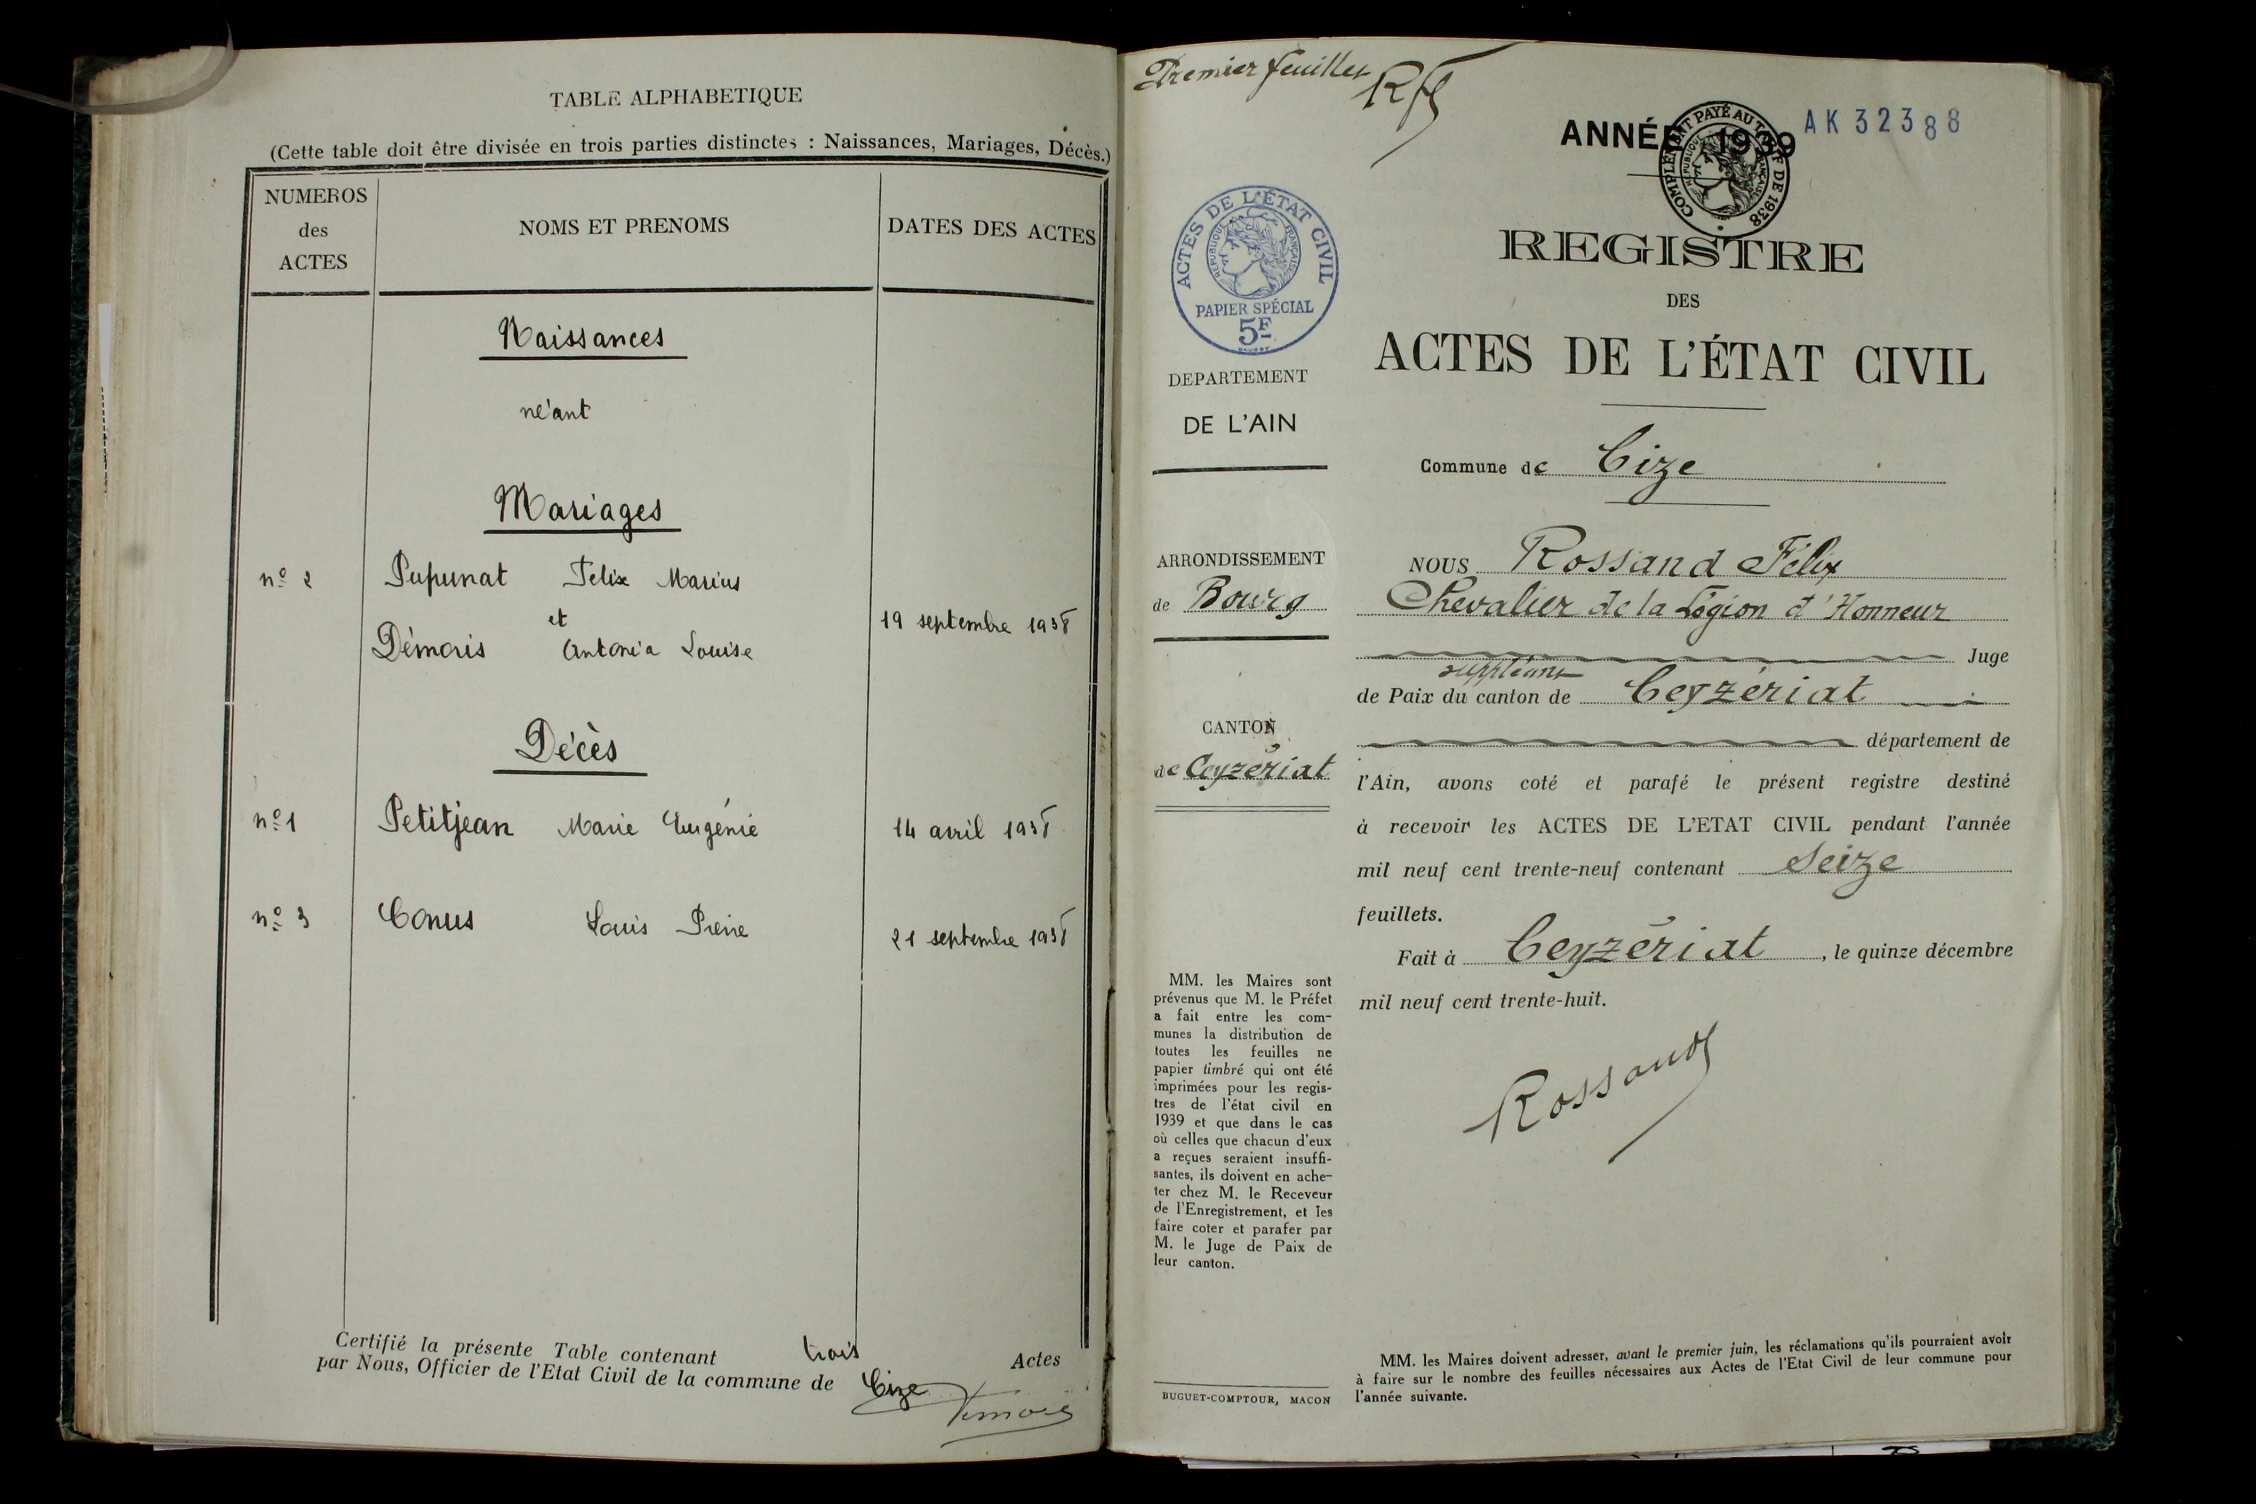 TABLE ALPHABETIQUE
(Cette table doit être divisée en trois parties distinctes : Naissances, Mariages, Décès.)
NUMEROS
des
ACTES
NOMS ET PRENOMS
DATES DES ACTES
Naissances
néant
Mariages
nº 2 Pupunat Felix Marius
et
19 septembre 1938
Démoris Antonia Louise
Décès
nº 1 Petitjean Marie Eugénie 14 avril 1938
nº 3 Conus Louis Pierre 21 septembre 1938
Certifié la présente Table contenant trois Actes
par Nous, Officier de l'Etat Civil de la commune de Cize
Premier feuillet
ANNÉE 1939
AK 32388
COMPLÉMENT PAYÉ AU TARIF DE 1938
RÉPUBLIQUE FRANÇAISE
ACTES DE L'ÉTAT CIVIL
RÉPUBLIQUE FRANÇAISE
PAPIER SPÉCIAL
5F
DEPARTEMENT
DE L'AIN
ARRONDISSEMENT
de Bourg
CANTON
de Ceyzériat
MM. les Maires sont
prévenus que M. le Préfet
a fait entre les com-
munes la distribution de
toutes les feuilles ne
papier timbré qui ont été
imprimées pour les regis-
tres de l'état civil en
1939 et que dans le cas
où celles que chacun d'eux
a reçues seraient insuffi-
santes, ils doivent en ache-
ter chez M. le Receveur
de l'Enregistrement, et les
faire coter et parafer par
M. le Juge de Paix de
leur canton.
BUGUET-COMPTOUR, MACON
REGISTRE
DES
ACTES DE L'ÉTAT CIVIL
Commune de Cize
NOUS Rossand Félix
Chevalier de la Légion d'Honneur
Juge
suppléant
de Paix du canton de Ceyzériat
département de
l'Ain, avons coté et parafé le présent registre destiné
à recevoir les ACTES DE L'ETAT CIVIL pendant l'année
mil neuf cent trente-neuf contenant Seize
feuillets.
Fait à Ceyzériat, le quinze décembre
mil neuf cent trente-huit.
Rossand
MM. les Maires doivent adresser, avant le premier juin, les réclamations qu'ils pourraient avoir
à faire sur le nombre des feuilles nécessaires aux Actes de l'Etat Civil de leur commune pour
l'année suivante.